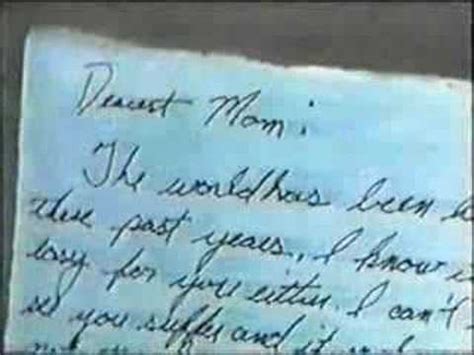 Dearest Mom:
The world has been
these past years, I know
easy for you either. I can't
see you suffer and it